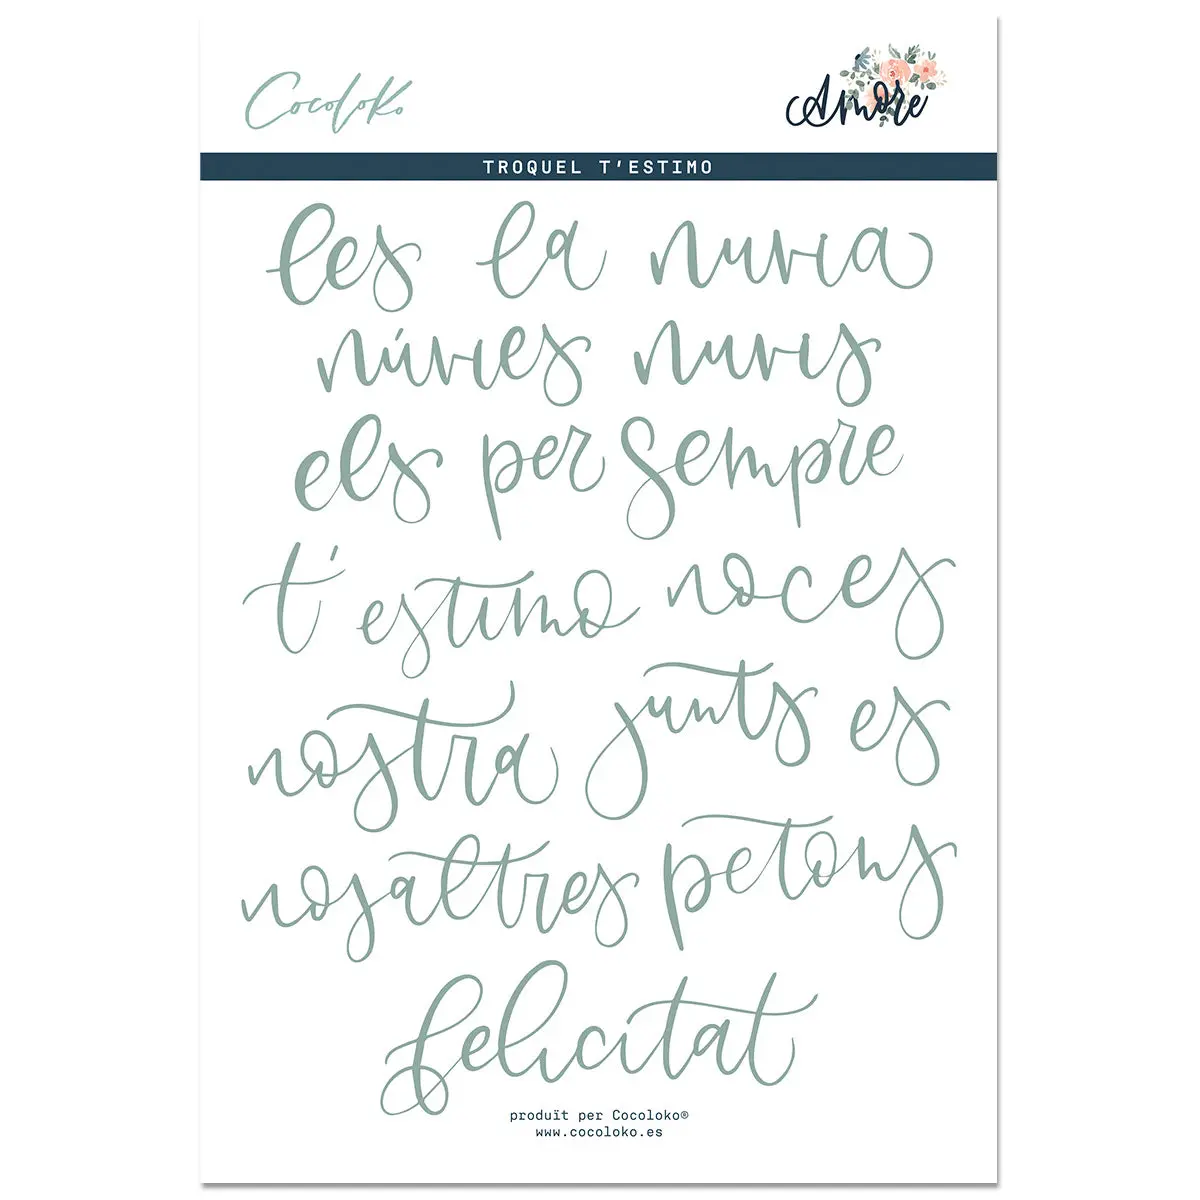 Cocoloko Amore
TROQUEL T'ESTIMO
les la nuvia
núvies nuvis
els per sempre
t' estimo noces
nostra junts es
nosaltres petons
felicitat
produït per Cocoloko®
www.cocoloko.es